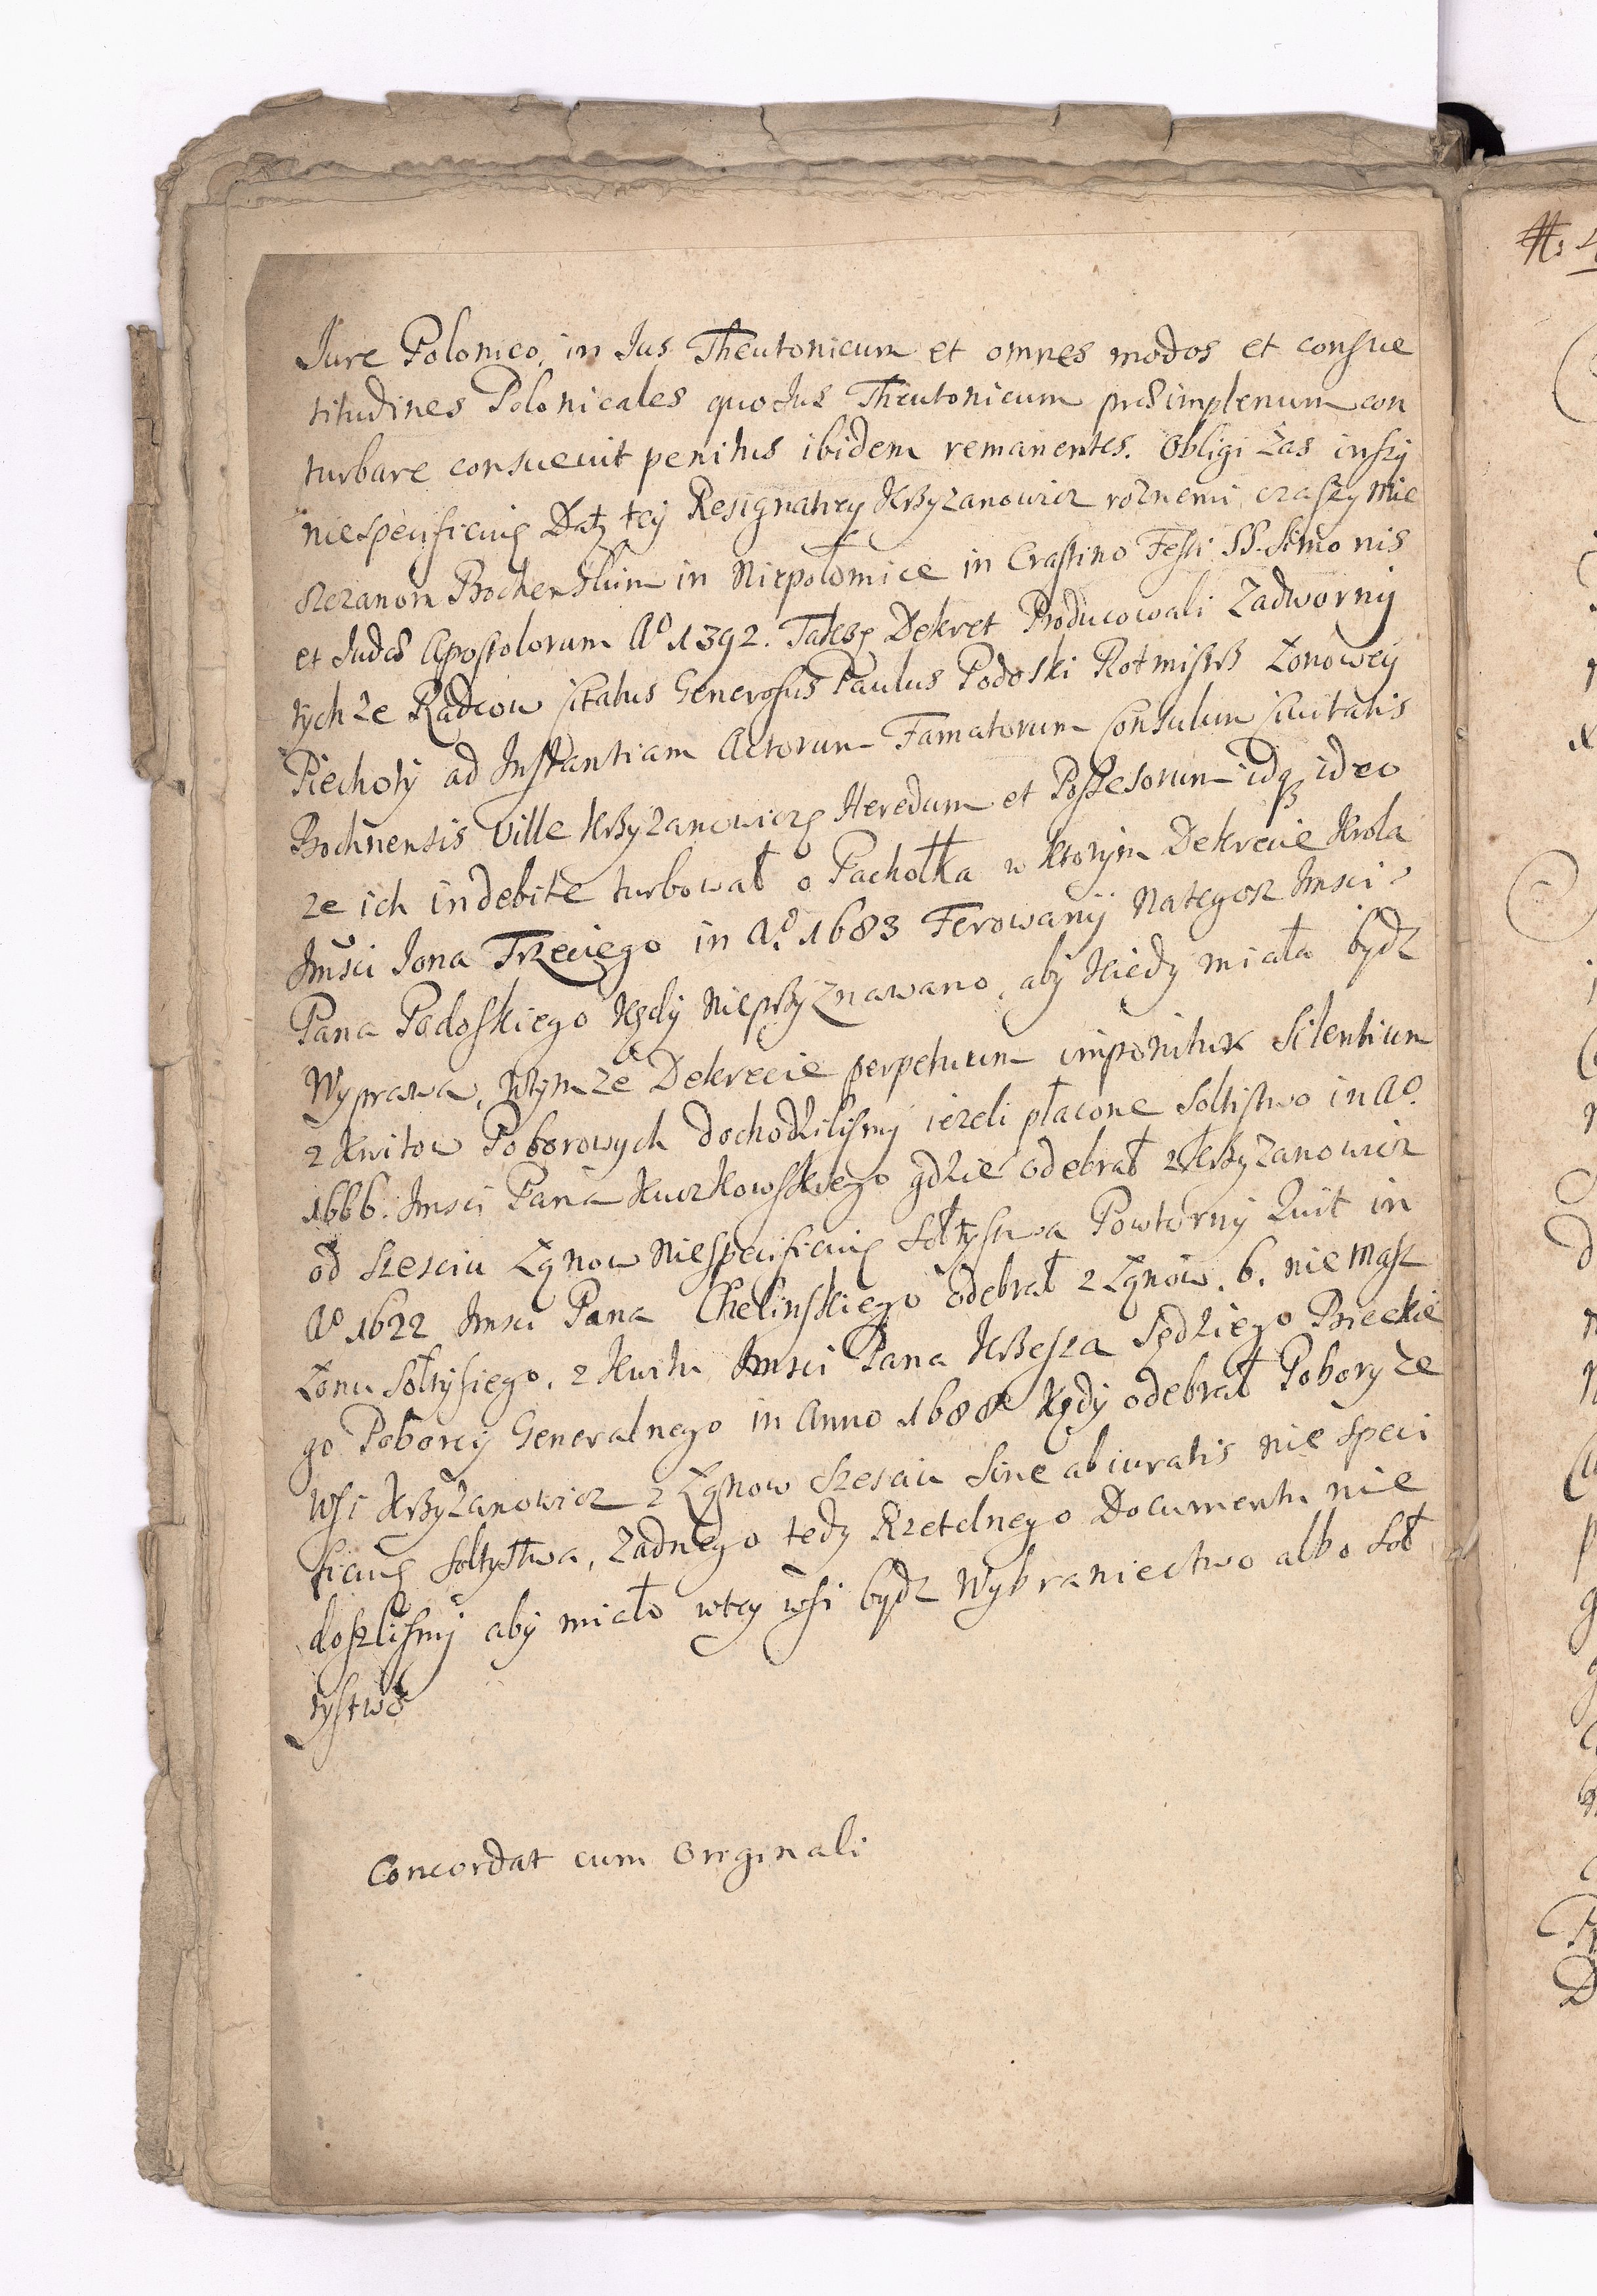 Jure Polonico, in Jus Theutonicum et omnes modos et consue
titudines Polonicales quo Jus Theutonicum prdimplenum con
turbare consuevit penitus ibidem remanentes. Obligi Zas inszy
niespecificuię Datę tey Resignatiey Krzyzanowicz roznemi czaszy Mie
szczanom Bochenskim in Niepołomice in Crastino Festi SS. Simonis
et Judæ Apostolorum Aº 1392. Takze Dekret Producowali Zadworny
tychze Radcow Citatus Generosus Paulus Podoski Rotmistrz Łonowey
Piechoty ad Instantiam Actorum Famatorum Consulum Civitatis
Bochnensis Ville Krzyzanowicze Heredum et Poszesorum idq ideo
ze ich indebite turbował o Pachołka w ktorym Dekrecie Krola
Jmsci Jona Trzeciego in Aº 1683 Ferowany Nategosz Jmsci
Pana Podoskiego Kędy Nieprzyznawano, aby Kiedy miała bydz
Wyprawa, Wtymze Dekrecie perpetuum imponitur Silentium
z Kwitow Poborowych dochodzilismy iezeli płacone Soltistwo in Aº
1666. Jmsci Pana Kurzkowskiego gdzie odebrał z Krzyzanowicz
od Szesciu Łąnow Niespecificuię Sołtystwa Powtorny Quit in
Aº 1622 Jmsci Pana Chelinskiego odebrał z Łąnow. 6. nie Masz
Łonu Sołtysiego. z Kwitu Jmsci Pana Krzesza Sędziego Bieckie
go Poborcy Generalnego in Anno 1688 Kędy odebrał Pobory ze
Wsi Krzyzanowicz z Łąnow Szesciu Sine abiuratis nie speci
ficuię Sołtystwa, Zadnego tedy Rzetelnego Documentu nie
doszlismy aby miało wtey wsi bydz Wybraniectwo albo Soł
tystwo
Concordat cum Originali